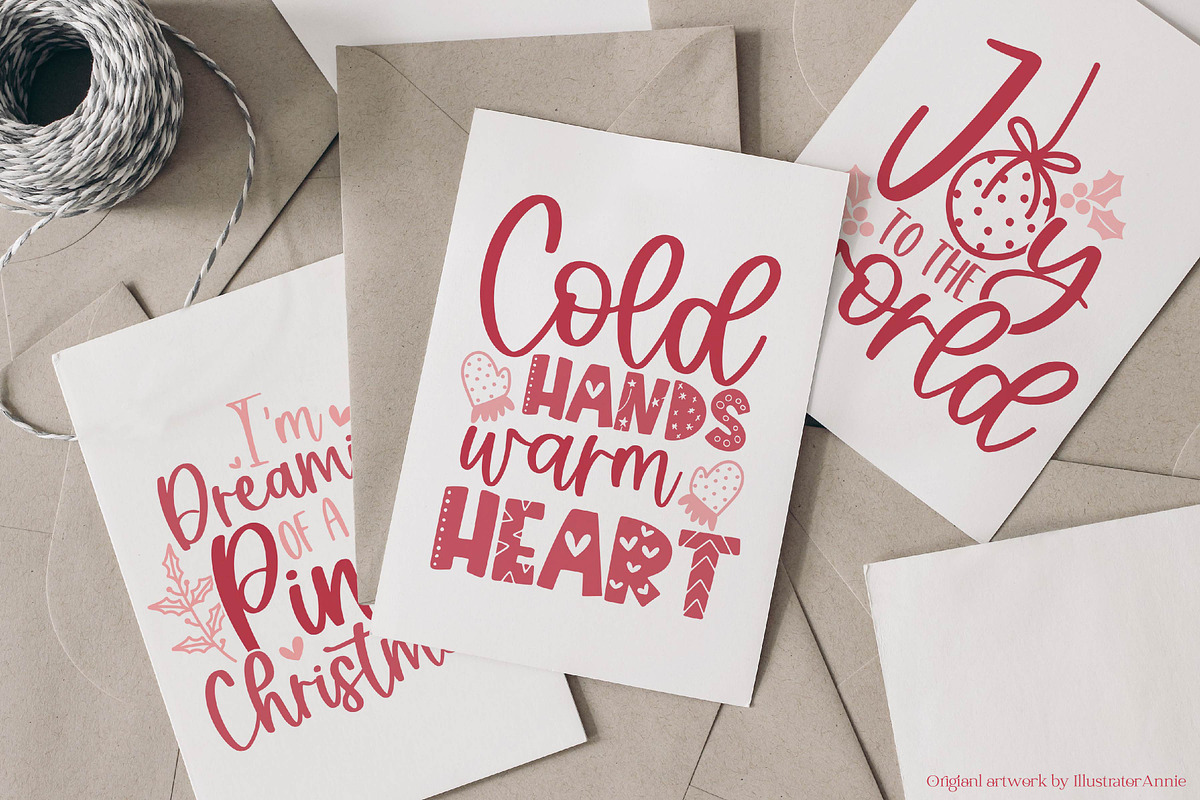 I'm
Dreami
OF A
Pin
Christm
Cold
HANDS
warm
HEART
Joy
TO THE
orld
Origianl artwork by IllustratorAnnie